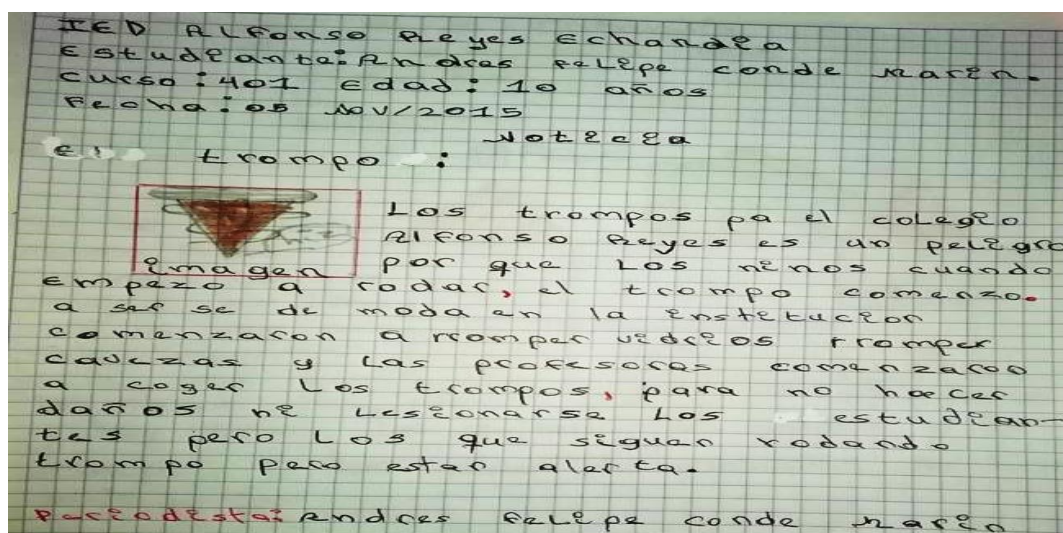 IED Alfonso Reyes Echandea
Estudiante: Andres Felipe conde Marin.
Curso: 401 Edad: 10 años
Fecha: 05 Nov/2015
Noticia
el trompo :
Los trompos pa el colegio
Alfonso Reyes es un peligro
imagen por que Los niños cuando
empezo a rodar, el trompo comenzo.
a ser se de moda en la institucion
comenzaron a rromper vidrios rromper
cavezas y Las profesoras comenzaron
a coger Los trompos, para no hacer
daños ni Lesionarse Los estudian-
tes pero Los que siguen rodando
trompo pero estan alerta.
Periodista: Andres Felipe conde Marin